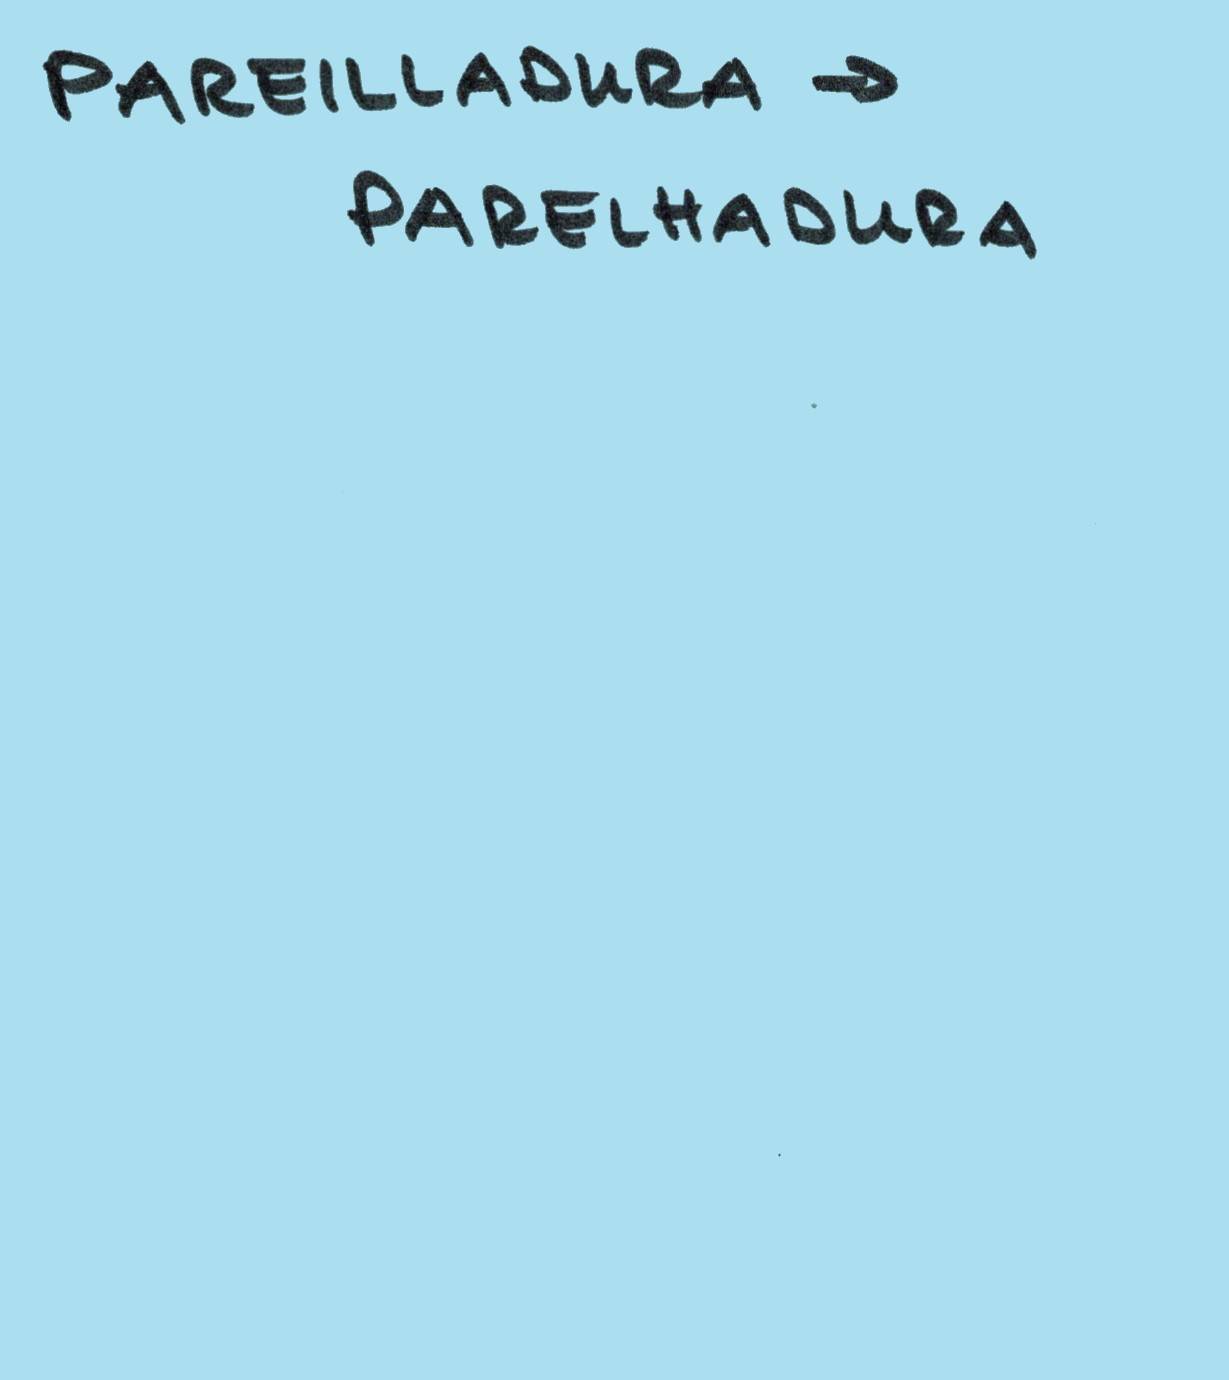 PAREILLADURA →
PARELHADURA